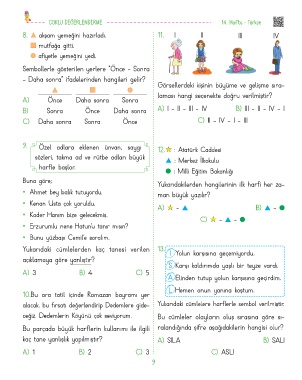 ÇOKLU DEĞERLENDİRME
14. Hafta - Türkçe
8. ▲ akşam yemeğini hazırladı.
■ mutfağa gitti.
● afiyetle yemeğini yedi.
Sembollerle gösterilen yerlere "Önce - Sonra
- Daha sonra" ifadelerinden hangileri gelir?
▲ ■ ●
A) Önce Daha sonra Sonra
B) Sonra Önce Daha sonra
C) Daha sonra Sonra Önce
9. Özel adlara eklenen unvan, saygı
sözleri, takma ad ve rütbe adları büyük
harfle başlar.
Buna göre;
• Ahmet bey balık tutuyordu.
• Kenan Usta çok yoruldu.
• Kader Hanım bize gelecekmiş.
• Erzurumlu nene Hatun'u tanır mısın?
• Bunu yüzbaşı Cemil'e soralım.
Yukarıdaki cümlelerden kaç tanesi verilen
açıklamaya göre yanlıştır?
A) 3 B) 4 C) 5
10. Bu ara tatil içinde Ramazan bayramı yer
alacak. bu fırsatı değerlendirip Dedemlere gide-
ceğiz. Dedemlerin Köyünü çok seviyorum.
Bu parçada büyük harflerin kullanımı ile ilgili
kaç tane yanlışlık yapılmıştır?
A) 1 B) 2 C) 3
11. I II III IV
Görsellerdeki kişinin büyüme ve gelişme sıra-
laması hangi seçenekte doğru verilmiştir?
A) I - II - III - IV B) III - II - IV - I
C) II - IV - I - III
12. ★ : Atatürk Caddesi
▲ : Merkez İlkokulu
● : Milli Eğitim Bakanlığı
Yukarıdakilerden hangilerinin ilk harfi her za-
man büyük yazılır?
A) ★ - ▲ B) ▲ - ●
C) ★ - ▲ - ●
13. I Yolun karşısına geçemiyordu.
S Karşı kaldırımda yaşlı bir teyze vardı.
A Elinden tutup yolun karşısına geçirdim.
L Hemen onun yanına koştum.
Yukarıdaki cümlelere harflerle sembol verilmiştir.
Bu cümleler olayların oluş sırasına göre sı-
ralandığında şifre aşağıdakilerin hangisi olur?
A) SILA B) SALI
C) ASLI
9